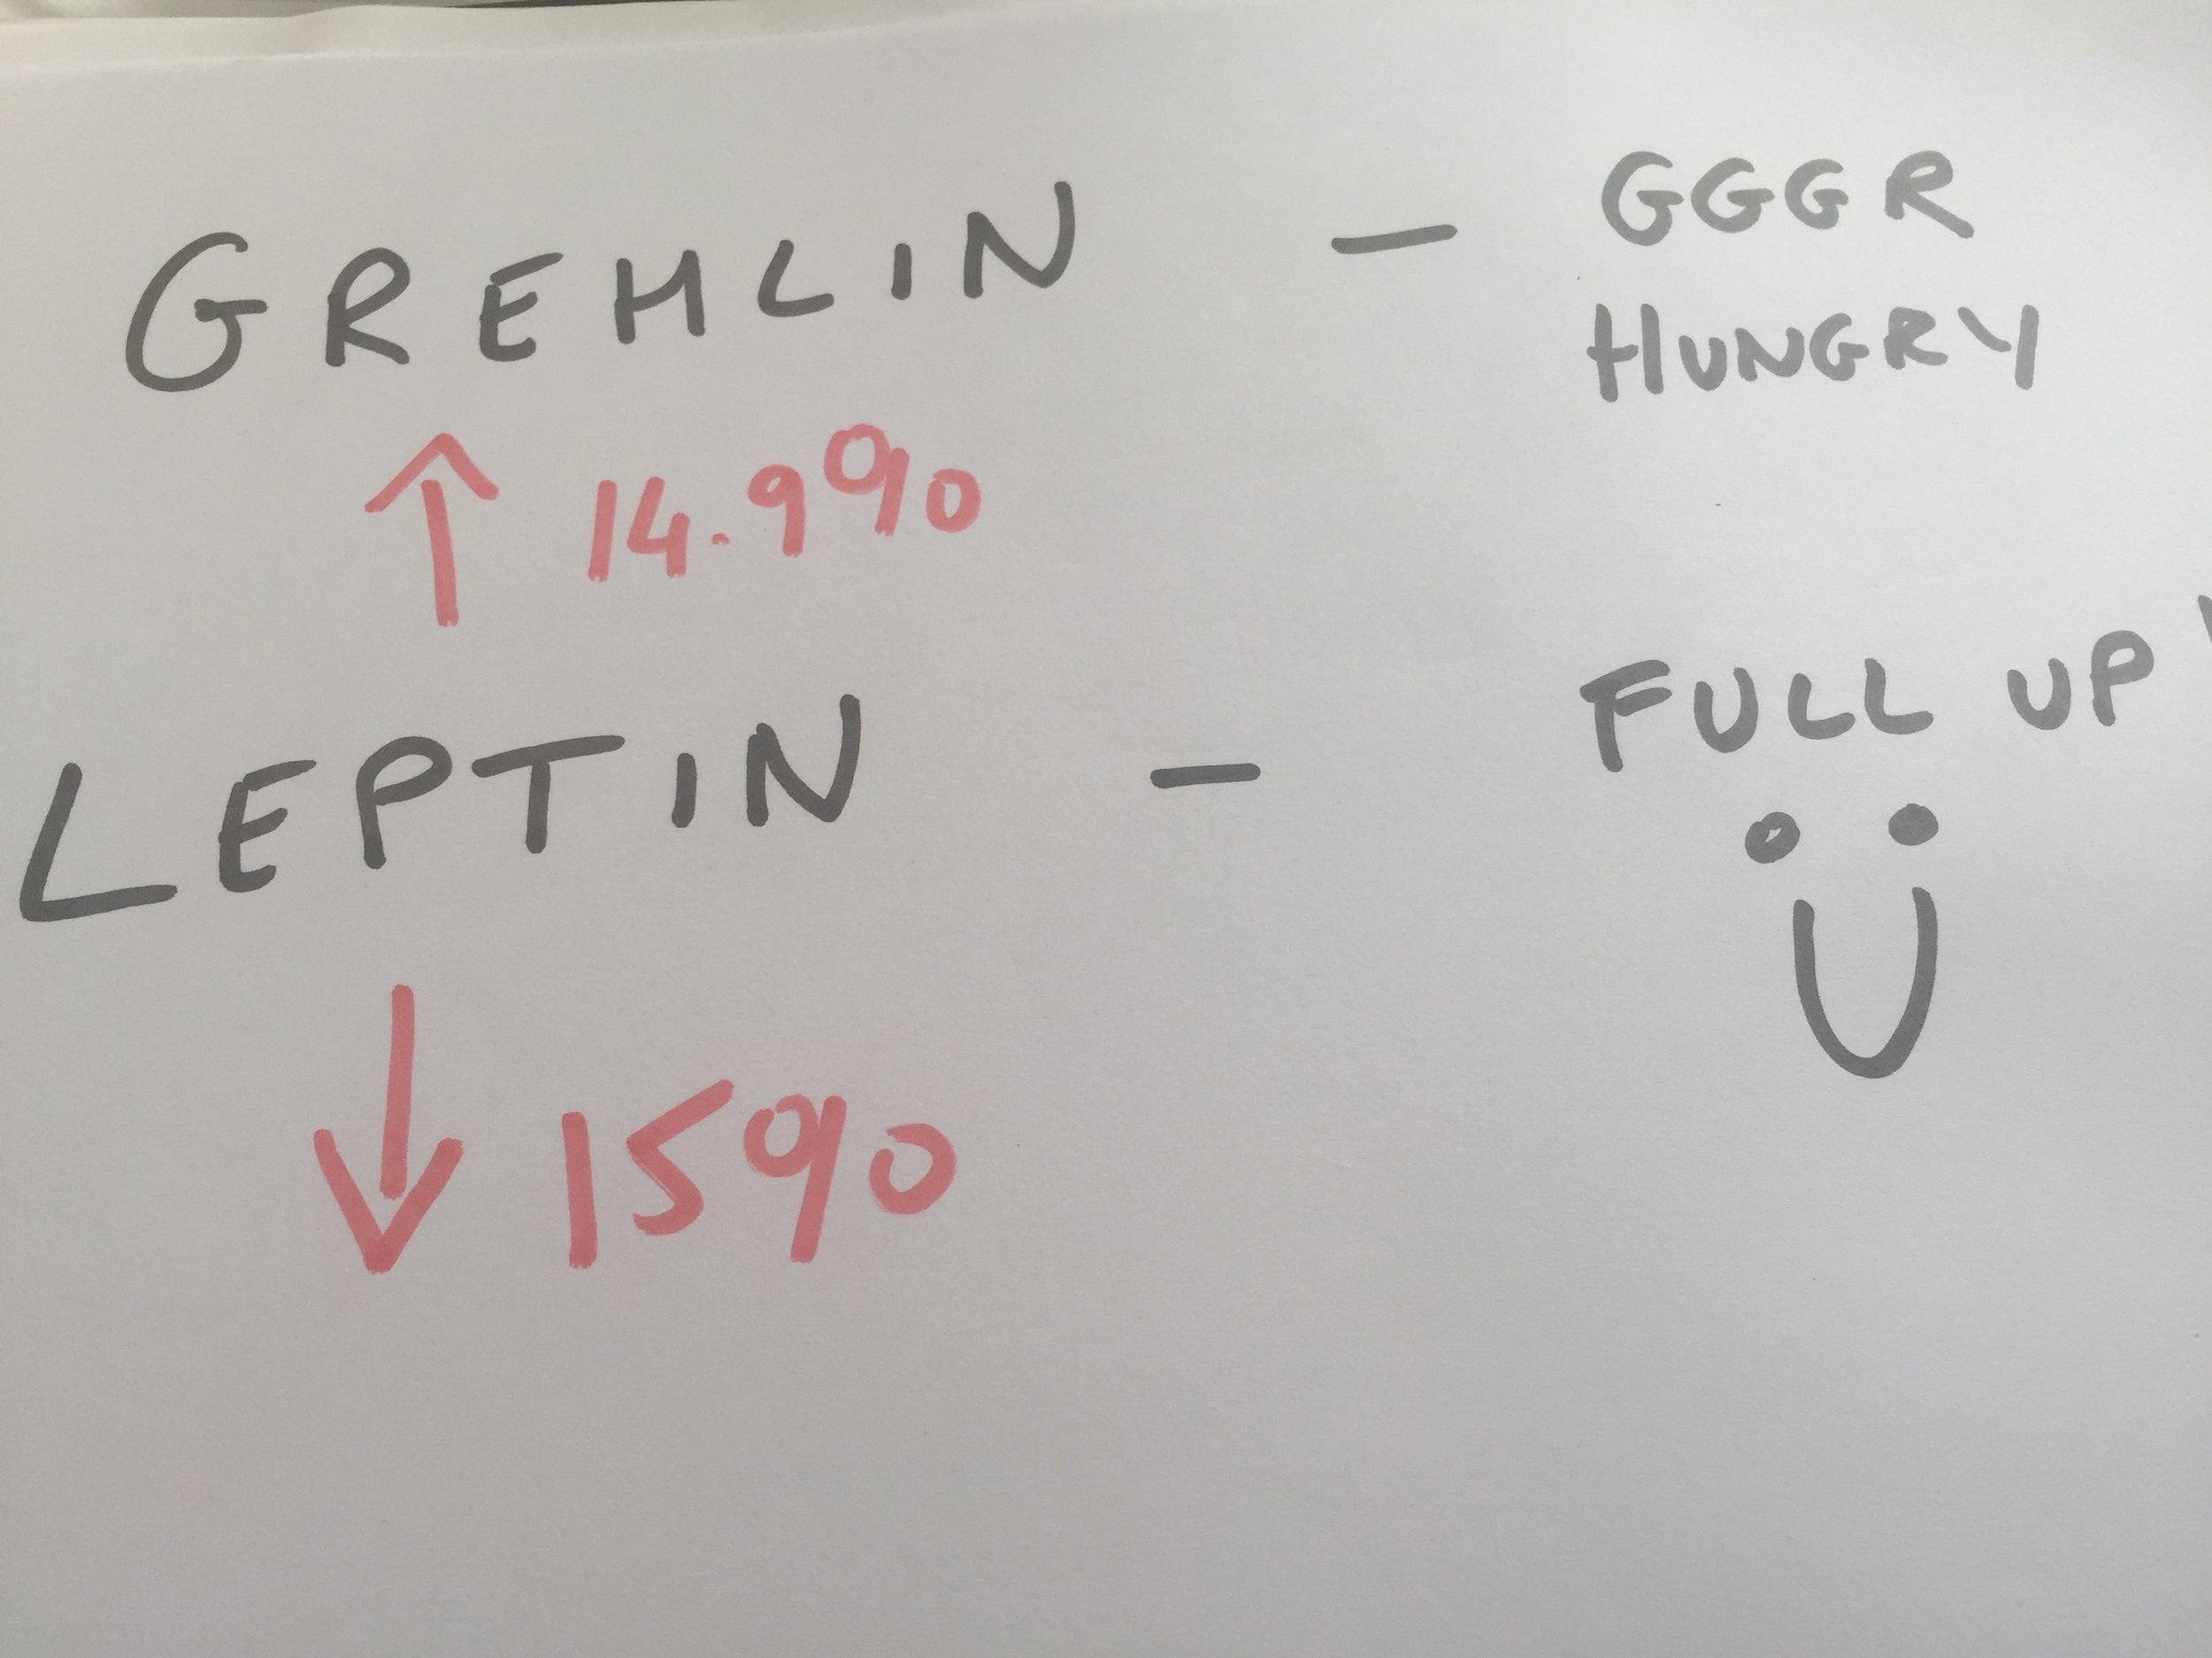 GREHLIN - GGGR
HUNGRY
↑ 14.9%
LEPTIN - FULL UP
↓ 15%